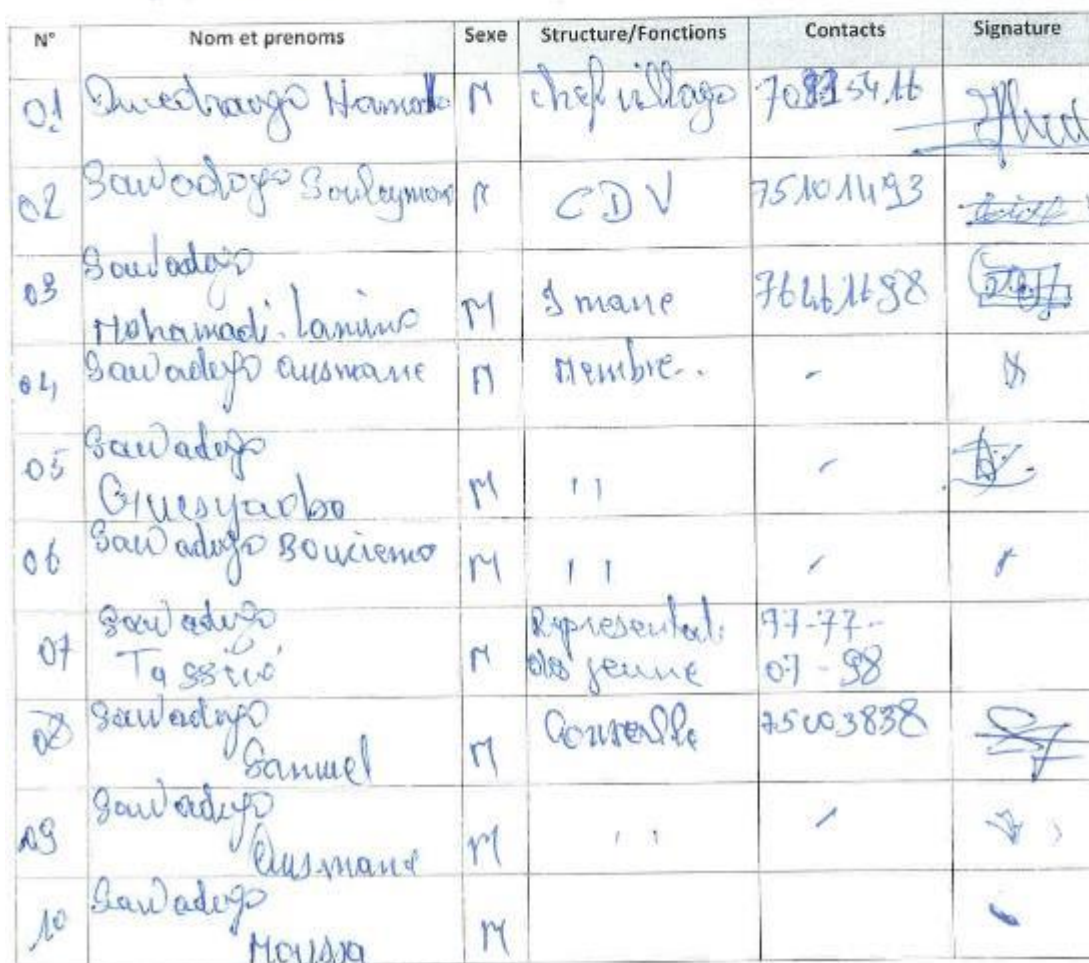 N° Nom et prenoms Sexe Structure/Fonctions Contacts Signature
01 Ouedraogo Hamad M chef village
02 Sawadogo Souleyman M CDV 75101493
03 Sawadogo
Mohamadi. Lamine M Imane 76461698
04 Sawadogo ousmane M Membre.. -
05 Sawadogo
M ,, -
06 Sawadogo M ,, -
07 Sawadogo Representat. 77-77-
M des jeune 07-98
08 Sawadogo
Samuel M 75003838
09 Sawadogo
Ousmane M ,, -
10 Sawadogo
Moussa M